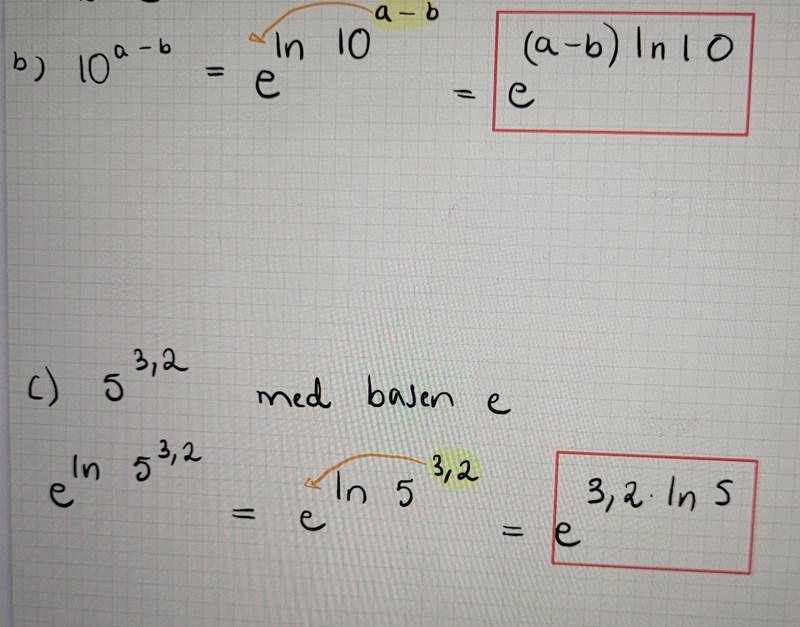 b) 10^{a-b} = e^{ln 10^{a-b}} = e^{(a-b) ln 10}
c) 5^{3,2} med basen e
e^{ln 5^{3,2}} = e^{ln 5^{3,2}} = e^{3,2·ln 5}